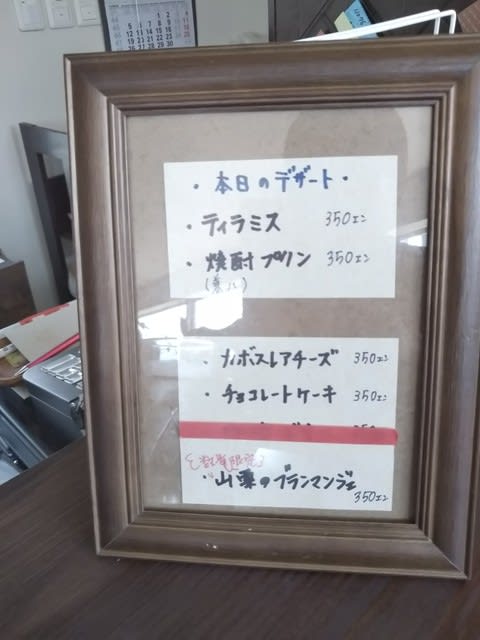 ・本日のデザート・
・ティラミス 350エン
・焼酎プリン 350エン
・カボスレアチーズ 350エン
・チョコレートケーキ 350エン
・山栗のブランマンジェ
350エン